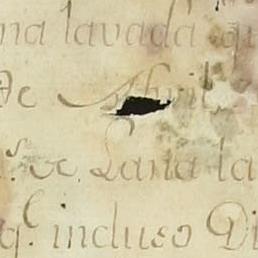 na lavada qu
de Abril
s. de Lana la
q.e incluso Di